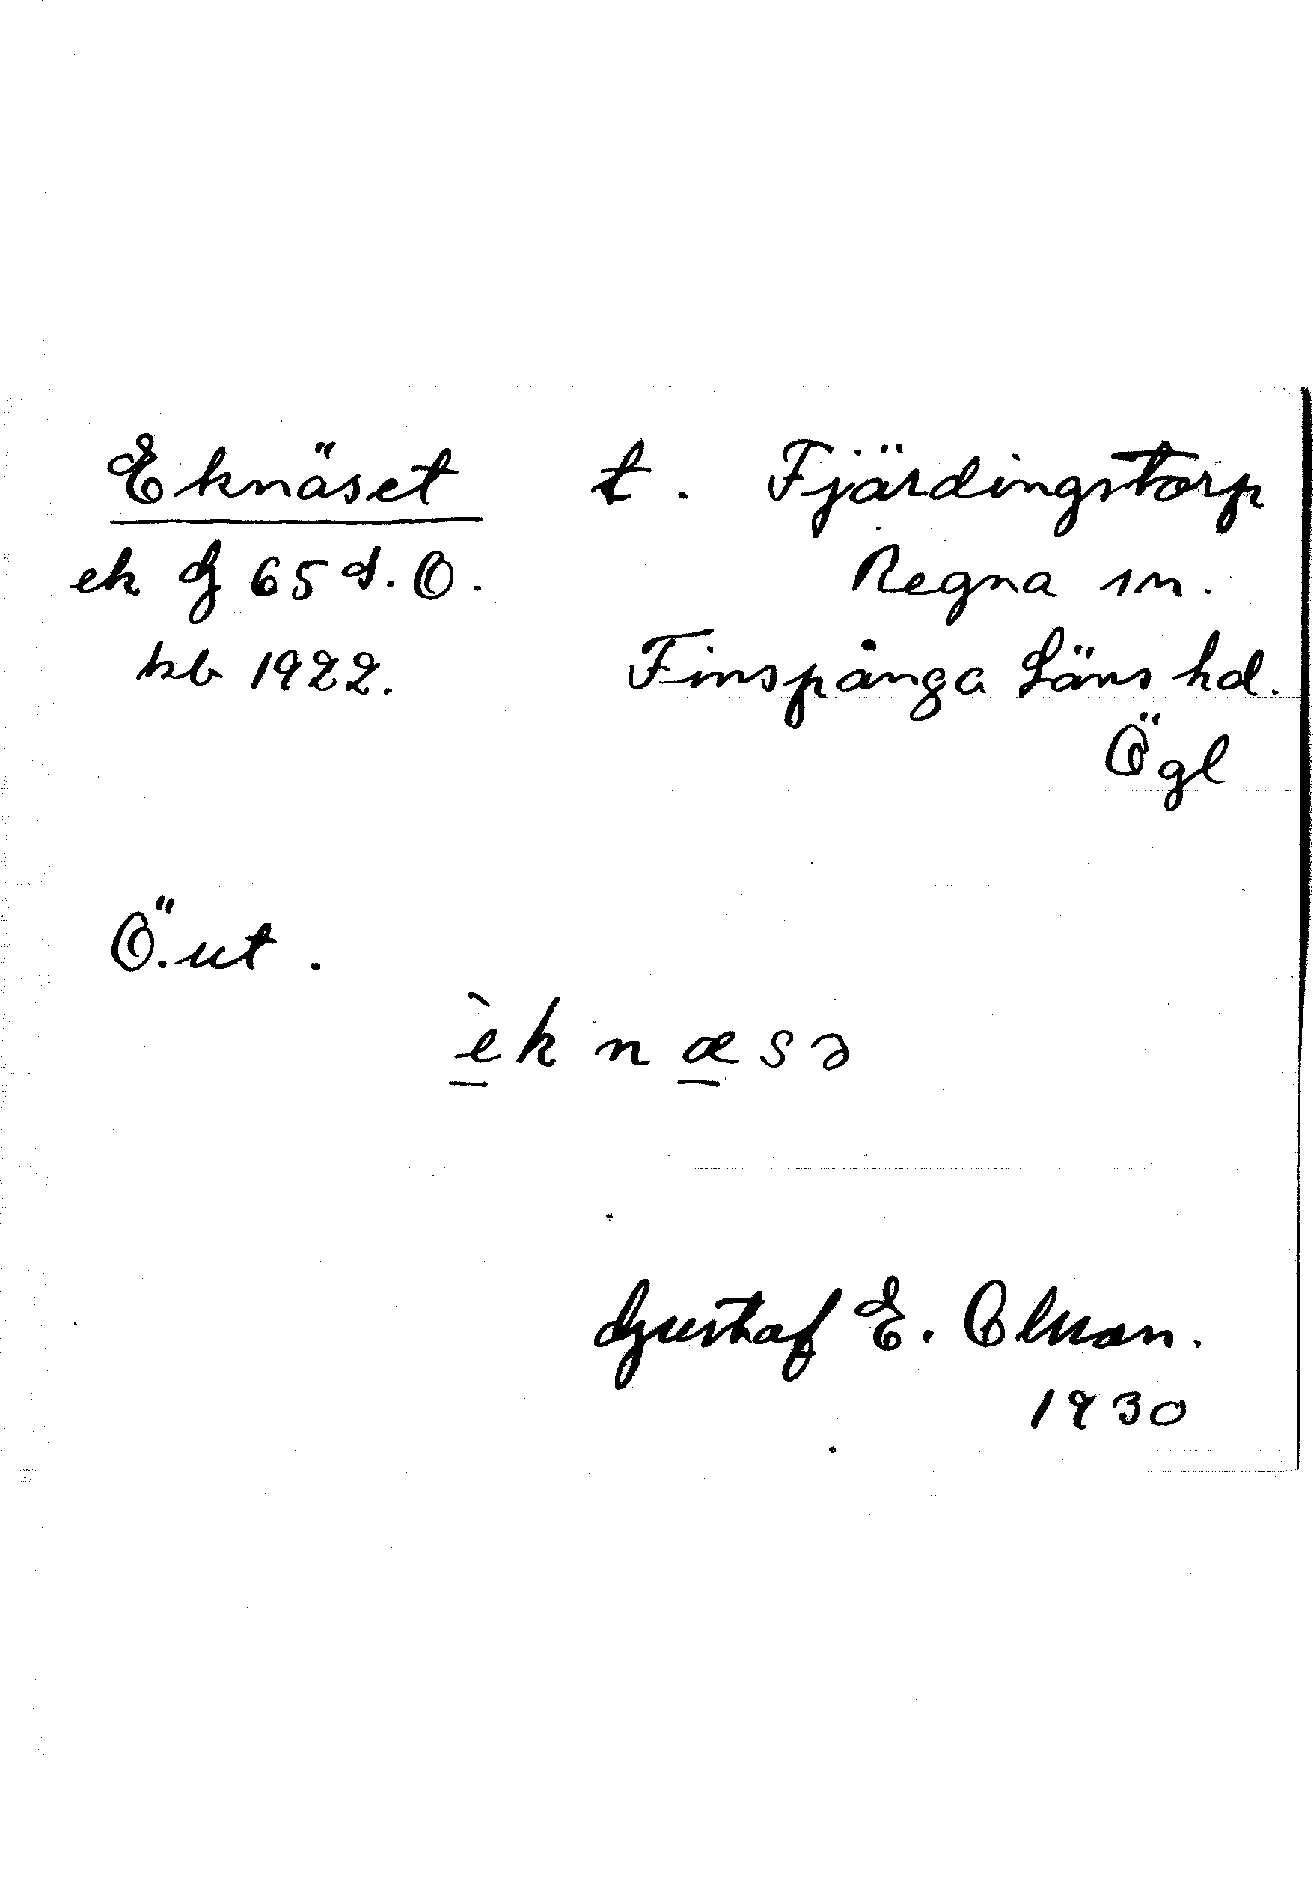 Eknäset t. Fjärdingstorp
ek G 65 S. O. Regna sn.
kb 1922. Finspånga Läns hd.
Ögl
Ö. ut.
èk n æ s ə
Gustaf E. Olsson.
1930